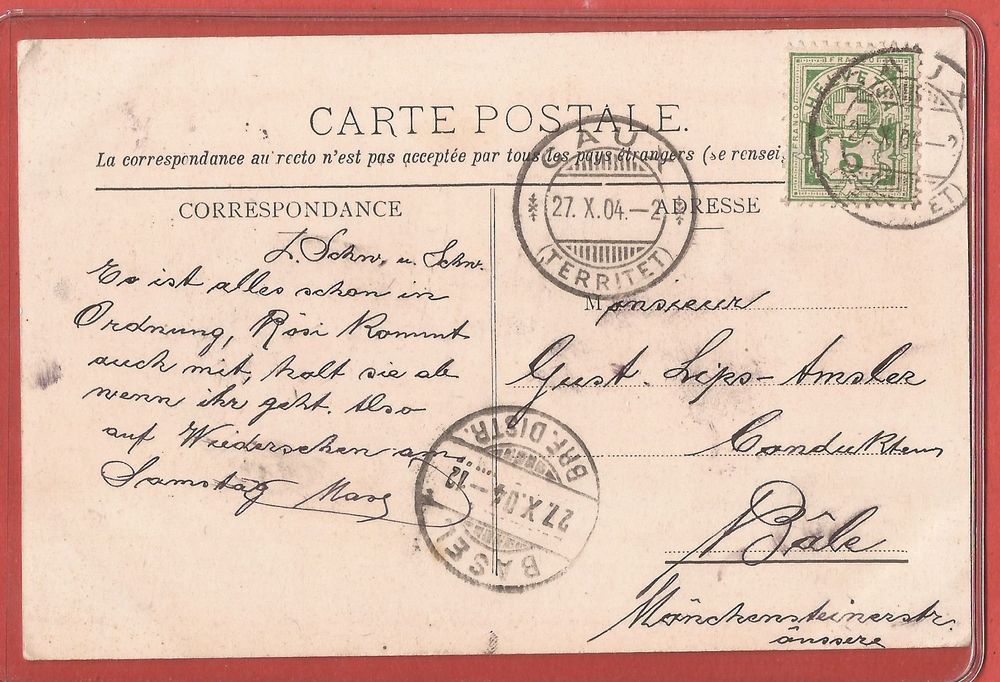 CARTE POSTALE.
La correspondance au recto n'est pas acceptée par tous les pays étrangers (se rensei
CORRESPONDANCE
ADRESSE
L. Schw. u. Schw.
Es ist alles schon in
Ordnung, Rösi kommt
auch mit, holt sie ab
wenn ihr geht. Also
auf Wiedersehen am
Samstag
Monsieur
Gust. Lips-Amsler
Condukteur
Bâle
Mönchensteinerstr.
äussere
FRANCO
HELVETIA
FRANCO
5
CAUX
27. X.04.–2
(TERRITET)
BASEL
27.X.04–12
BRF. DISTR.